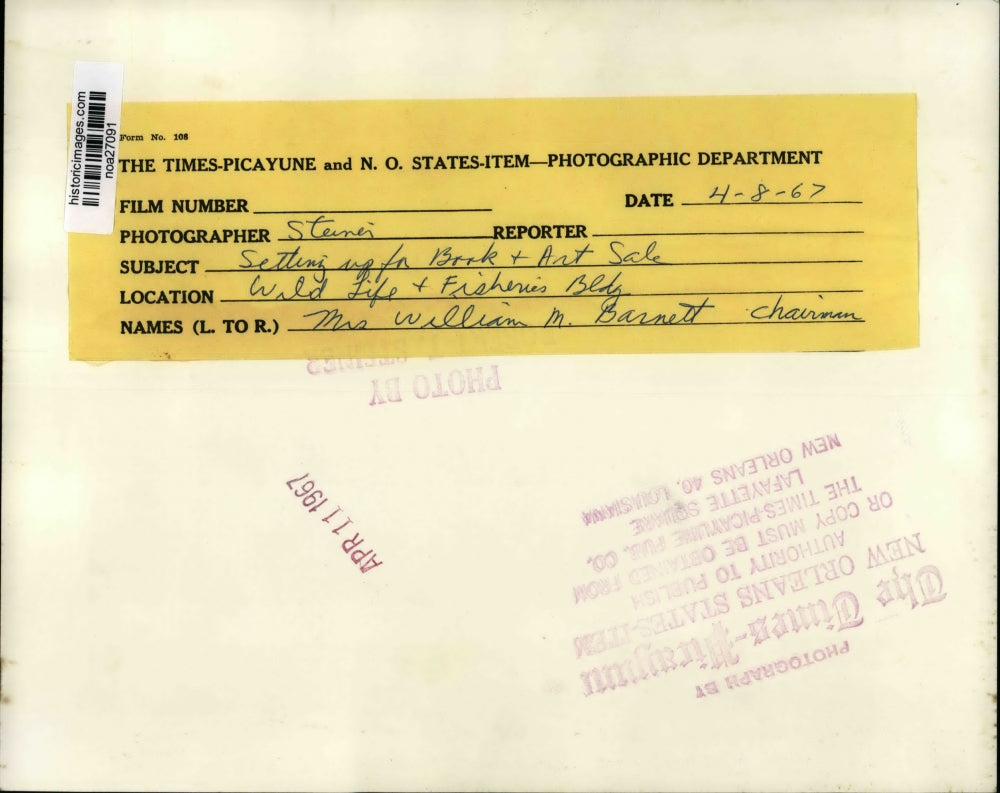 historicimages.com
noa27091
Form No. 108
THE TIMES-PICAYUNE and N. O. STATES-ITEM—PHOTOGRAPHIC DEPARTMENT
FILM NUMBER
DATE 4-8-67
PHOTOGRAPHER Steiner
REPORTER
SUBJECT Setting up for Book + Art Sale
LOCATION Wild Life + Fisheries Bldg
NAMES (L. TO R.) Mrs William M. Barnett chairman
PHOTO BY
STEINER
APR 11 1967
PHOTOGRAPH BY
The Times-Picayune
NEW ORLEANS STATES-ITEM
AUTHORITY TO PUBLISH
OR COPY MUST BE OBTAINED FROM
THE TIMES-PICAYUNE PUB. CO.
LAFAYETTE SQUARE
NEW ORLEANS 40, LOUISIANA